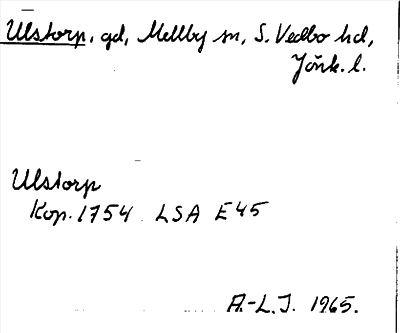 Ulstorp, gd, Mellby sn, S. Vedbo hd,
Jönk. l.
Ulstorp
Kop. 1754 LSA E45
A.-L.J. 1965.